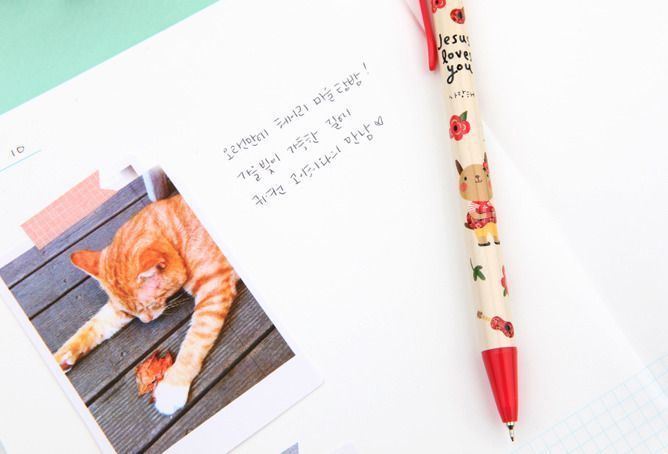 10
오랜만에 헤이리 마을 탐방!
가을빛이 가득한 길에
귀여운 고양이와의 만남♡
Jesus
loves
you
사랑해